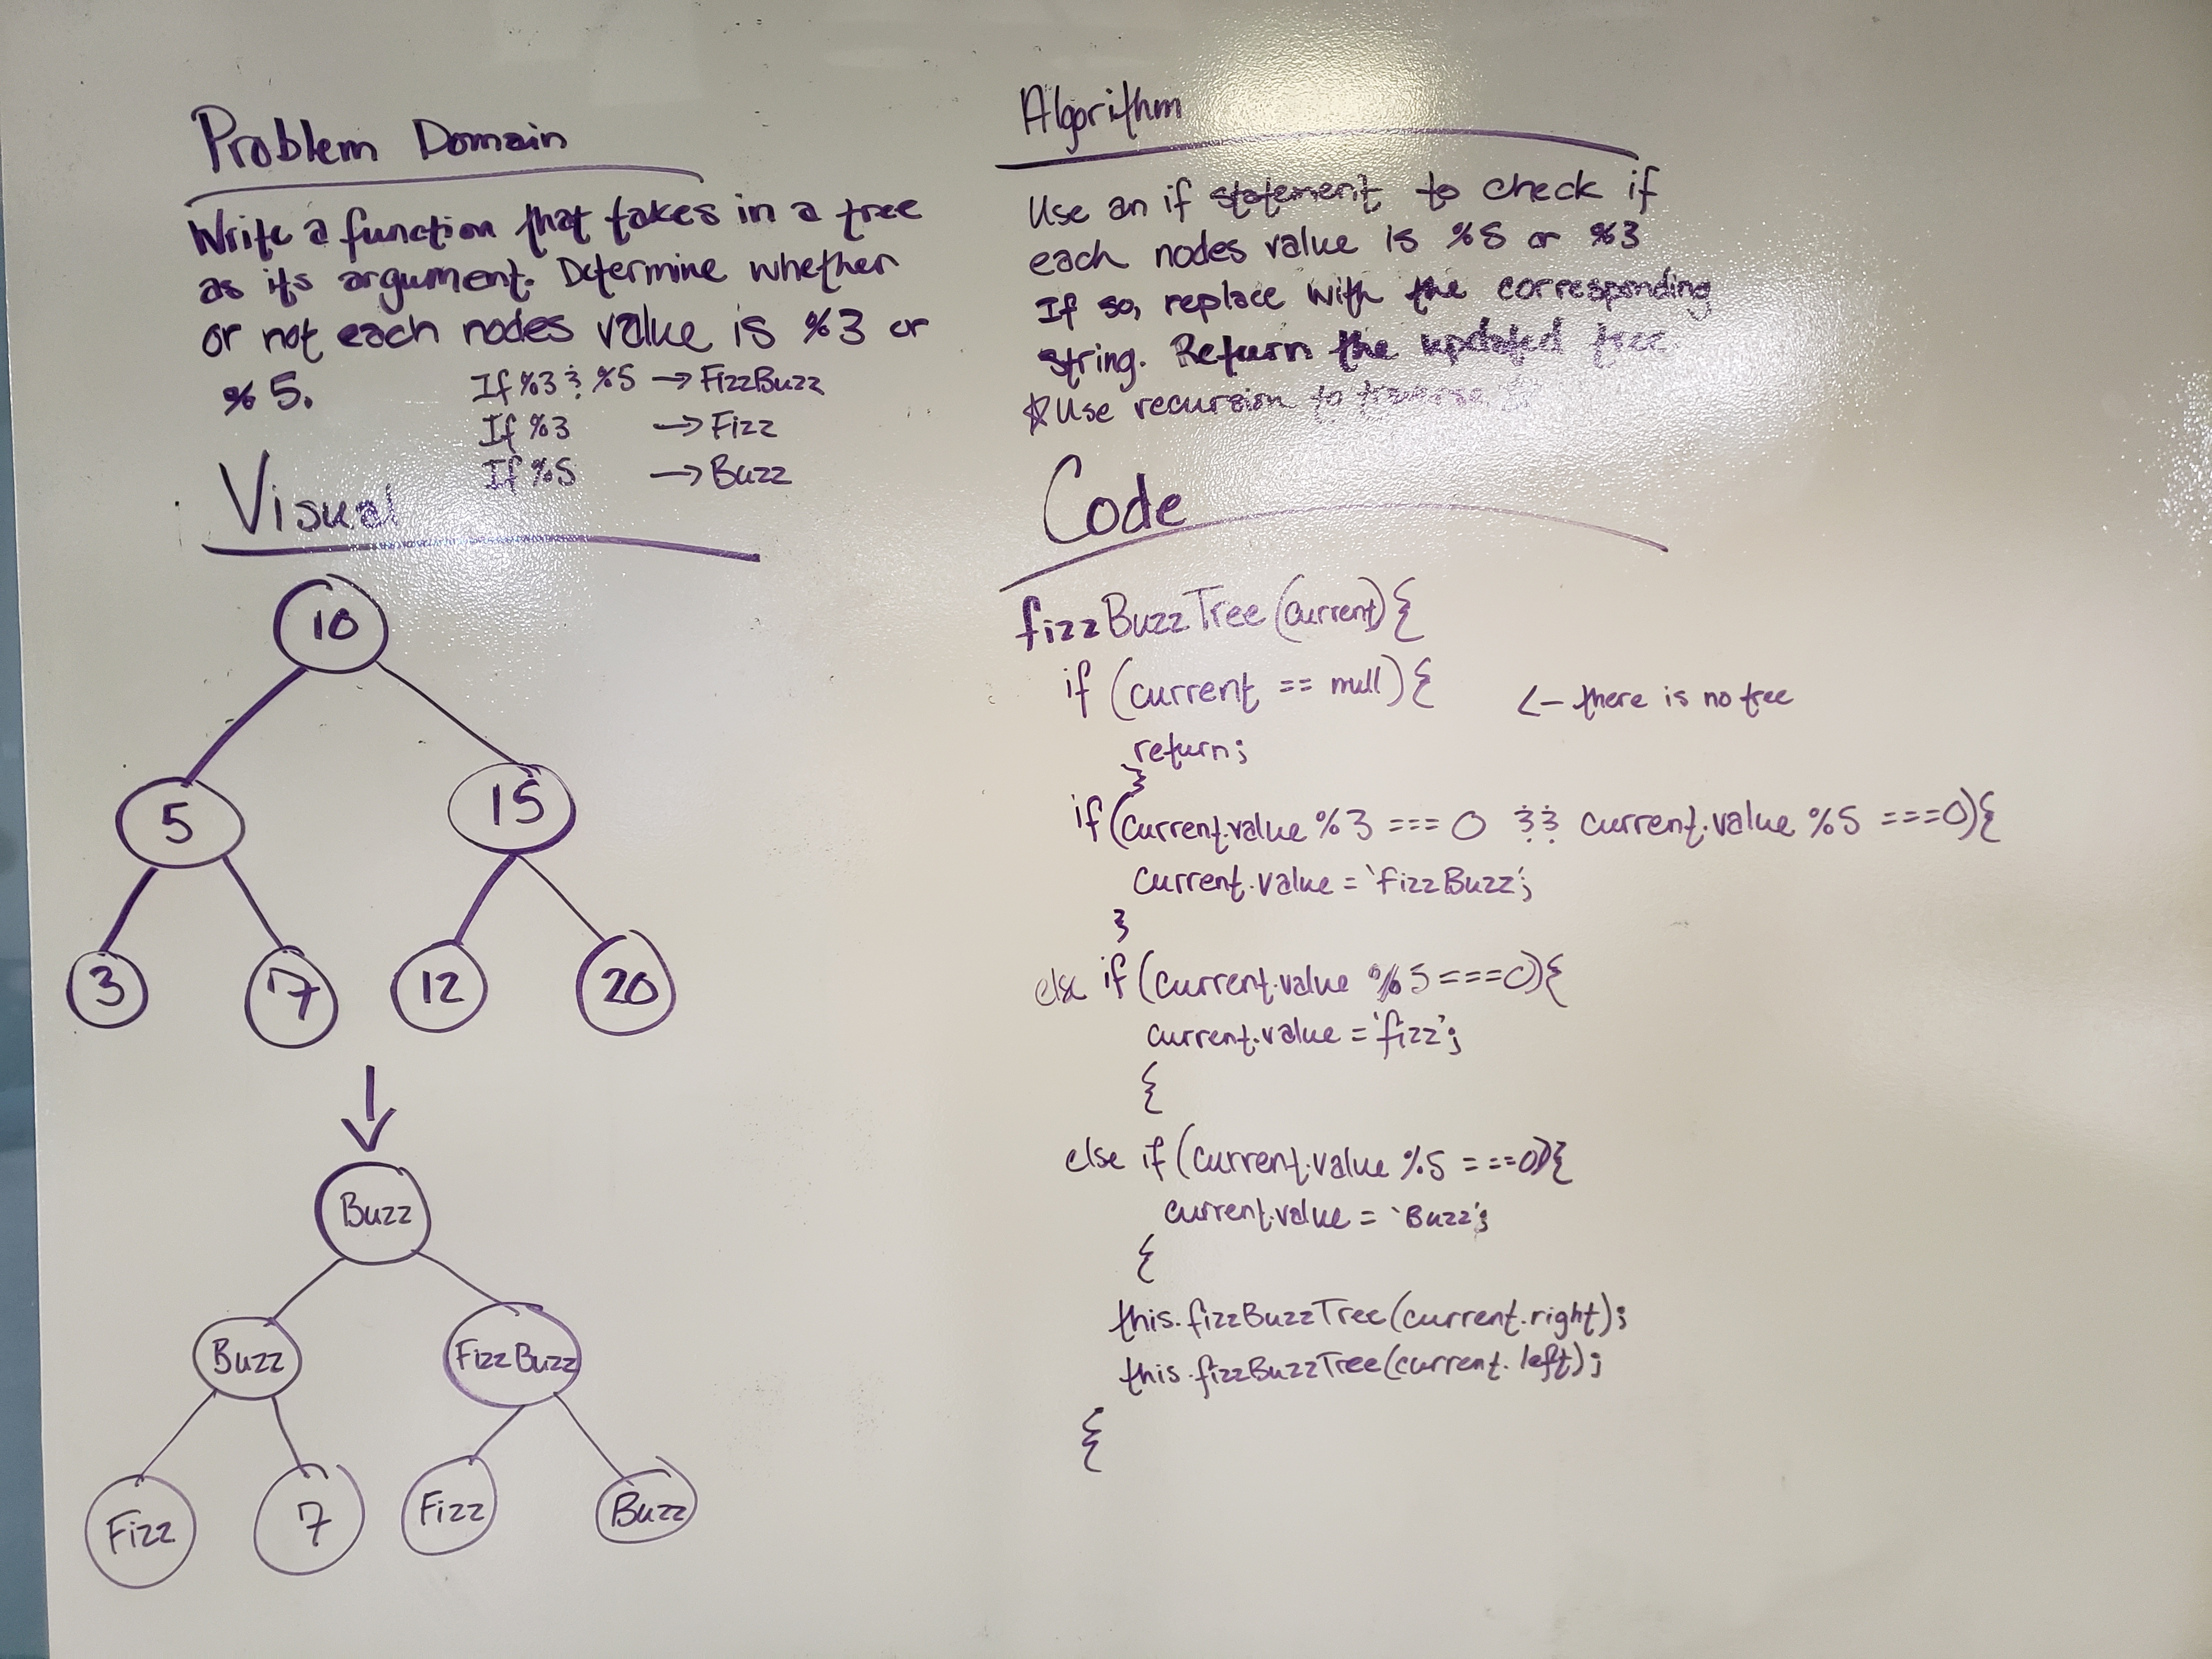 Problem Domain
Write a function that takes in a tree
as its argument. Determine whether
or not each nodes value is %3 or
%5.
If %3 & %5 → FizzBuzz
If %3 → Fizz
If %5 → Buzz
Visual
10
5 15
3 7 12 20
Buzz
Buzz FizzBuzz
Fizz 7 Fizz Buzz
Algorithm
Use an if statement to check if
each nodes value is %5 or %3
If so, replace with the corresponding
string. Return the updated tree
☆Use recursion to traverse
Code
fizzBuzzTree(current){
if (current == null){ <- there is no tree
return;
}
if(current.value %3 === 0 && current.value %5 ===0){
current.value = 'FizzBuzz';
}
else if (current.value % 3 ===0){
current.value = 'fizz';
{
else if (current.value %5 ===0){
current.value = 'Buzz';
{
this.fizzBuzzTree(current.right);
this.fizzBuzzTree(current.left);
{